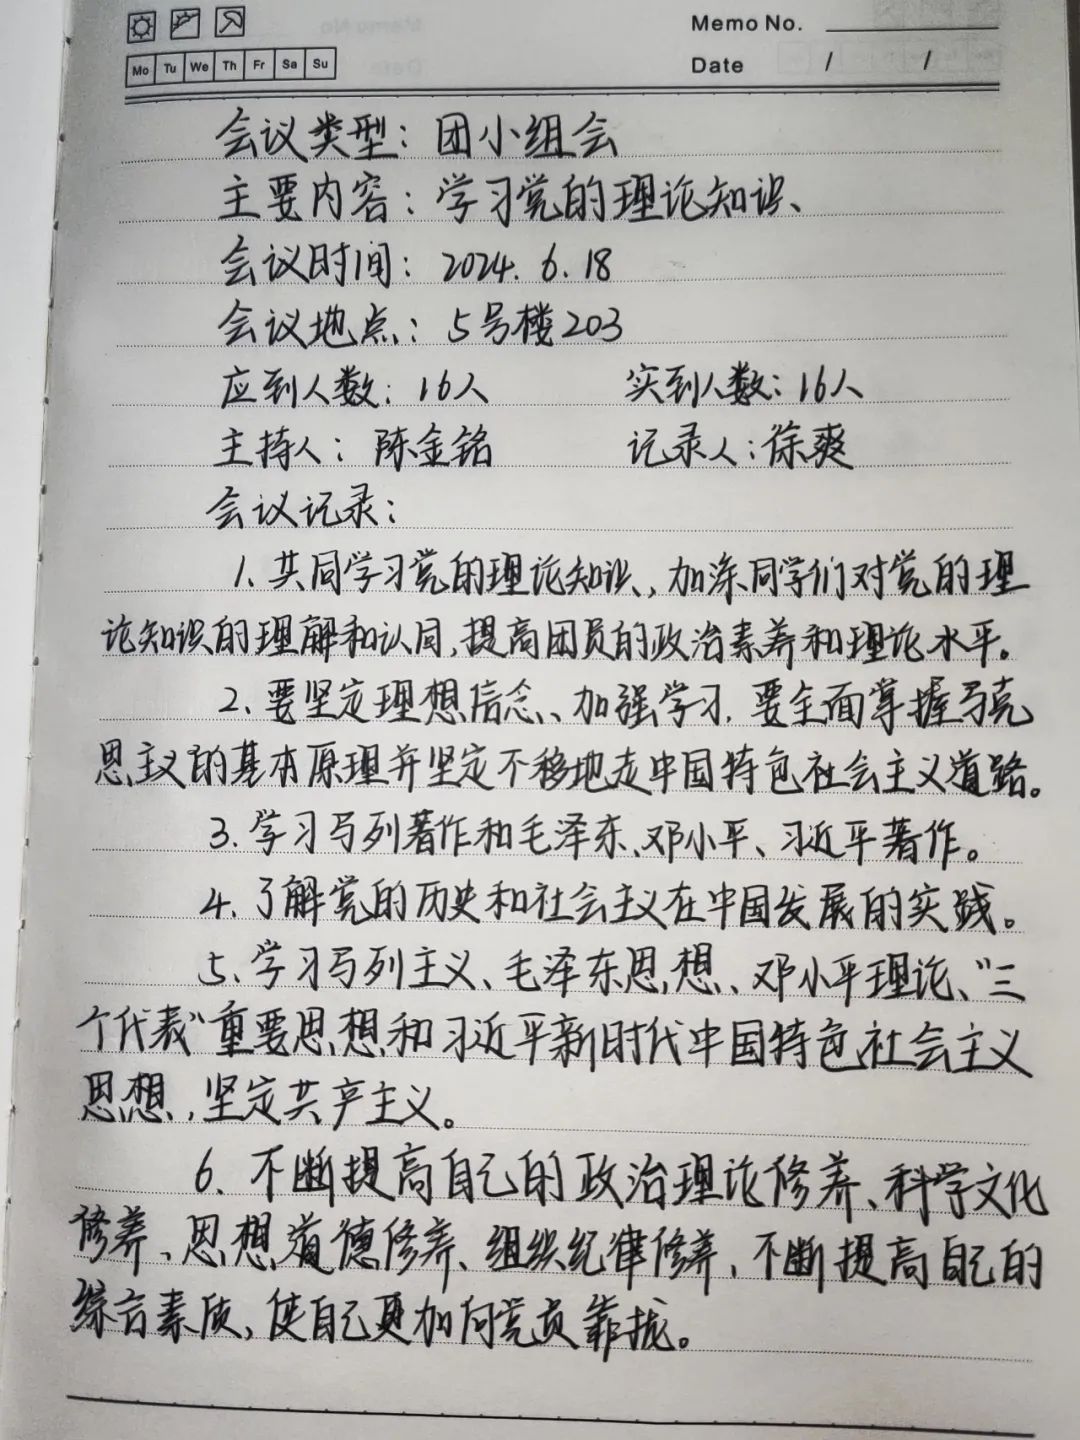 Memo No.
Mo Tu We Th Fr Sa Su
Date / /
会议类型：团小组会
主要内容：学习党的理论知识、
会议时间：2024.6.18
会议地点：5号楼203
应到人数：16人 实到人数：16人
主持人：陈金铭 记录人：徐爽
会议记录：
1、共同学习党的理论知识、加深同学们对党的理
论知识的理解和认同，提高团员的政治素养和理论水平。
2、要坚定理想信念、加强学习，要全面掌握马克
思主义的基本原理并坚定不移地走中国特色社会主义道路。
3、学习马列著作和毛泽东、邓小平、习近平著作。
4、了解党的历史和社会主义在中国发展的实践。
5、学习马列主义、毛泽东思想、邓小平理论、“三
个代表”重要思想和习近平新时代中国特色社会主义
思想，坚定共产主义。
6、不断提高自己的政治理论修养、科学文化
修养、思想道德修养、组织纪律修养，不断提高自己的
综合素质，使自己更加向党员靠拢。